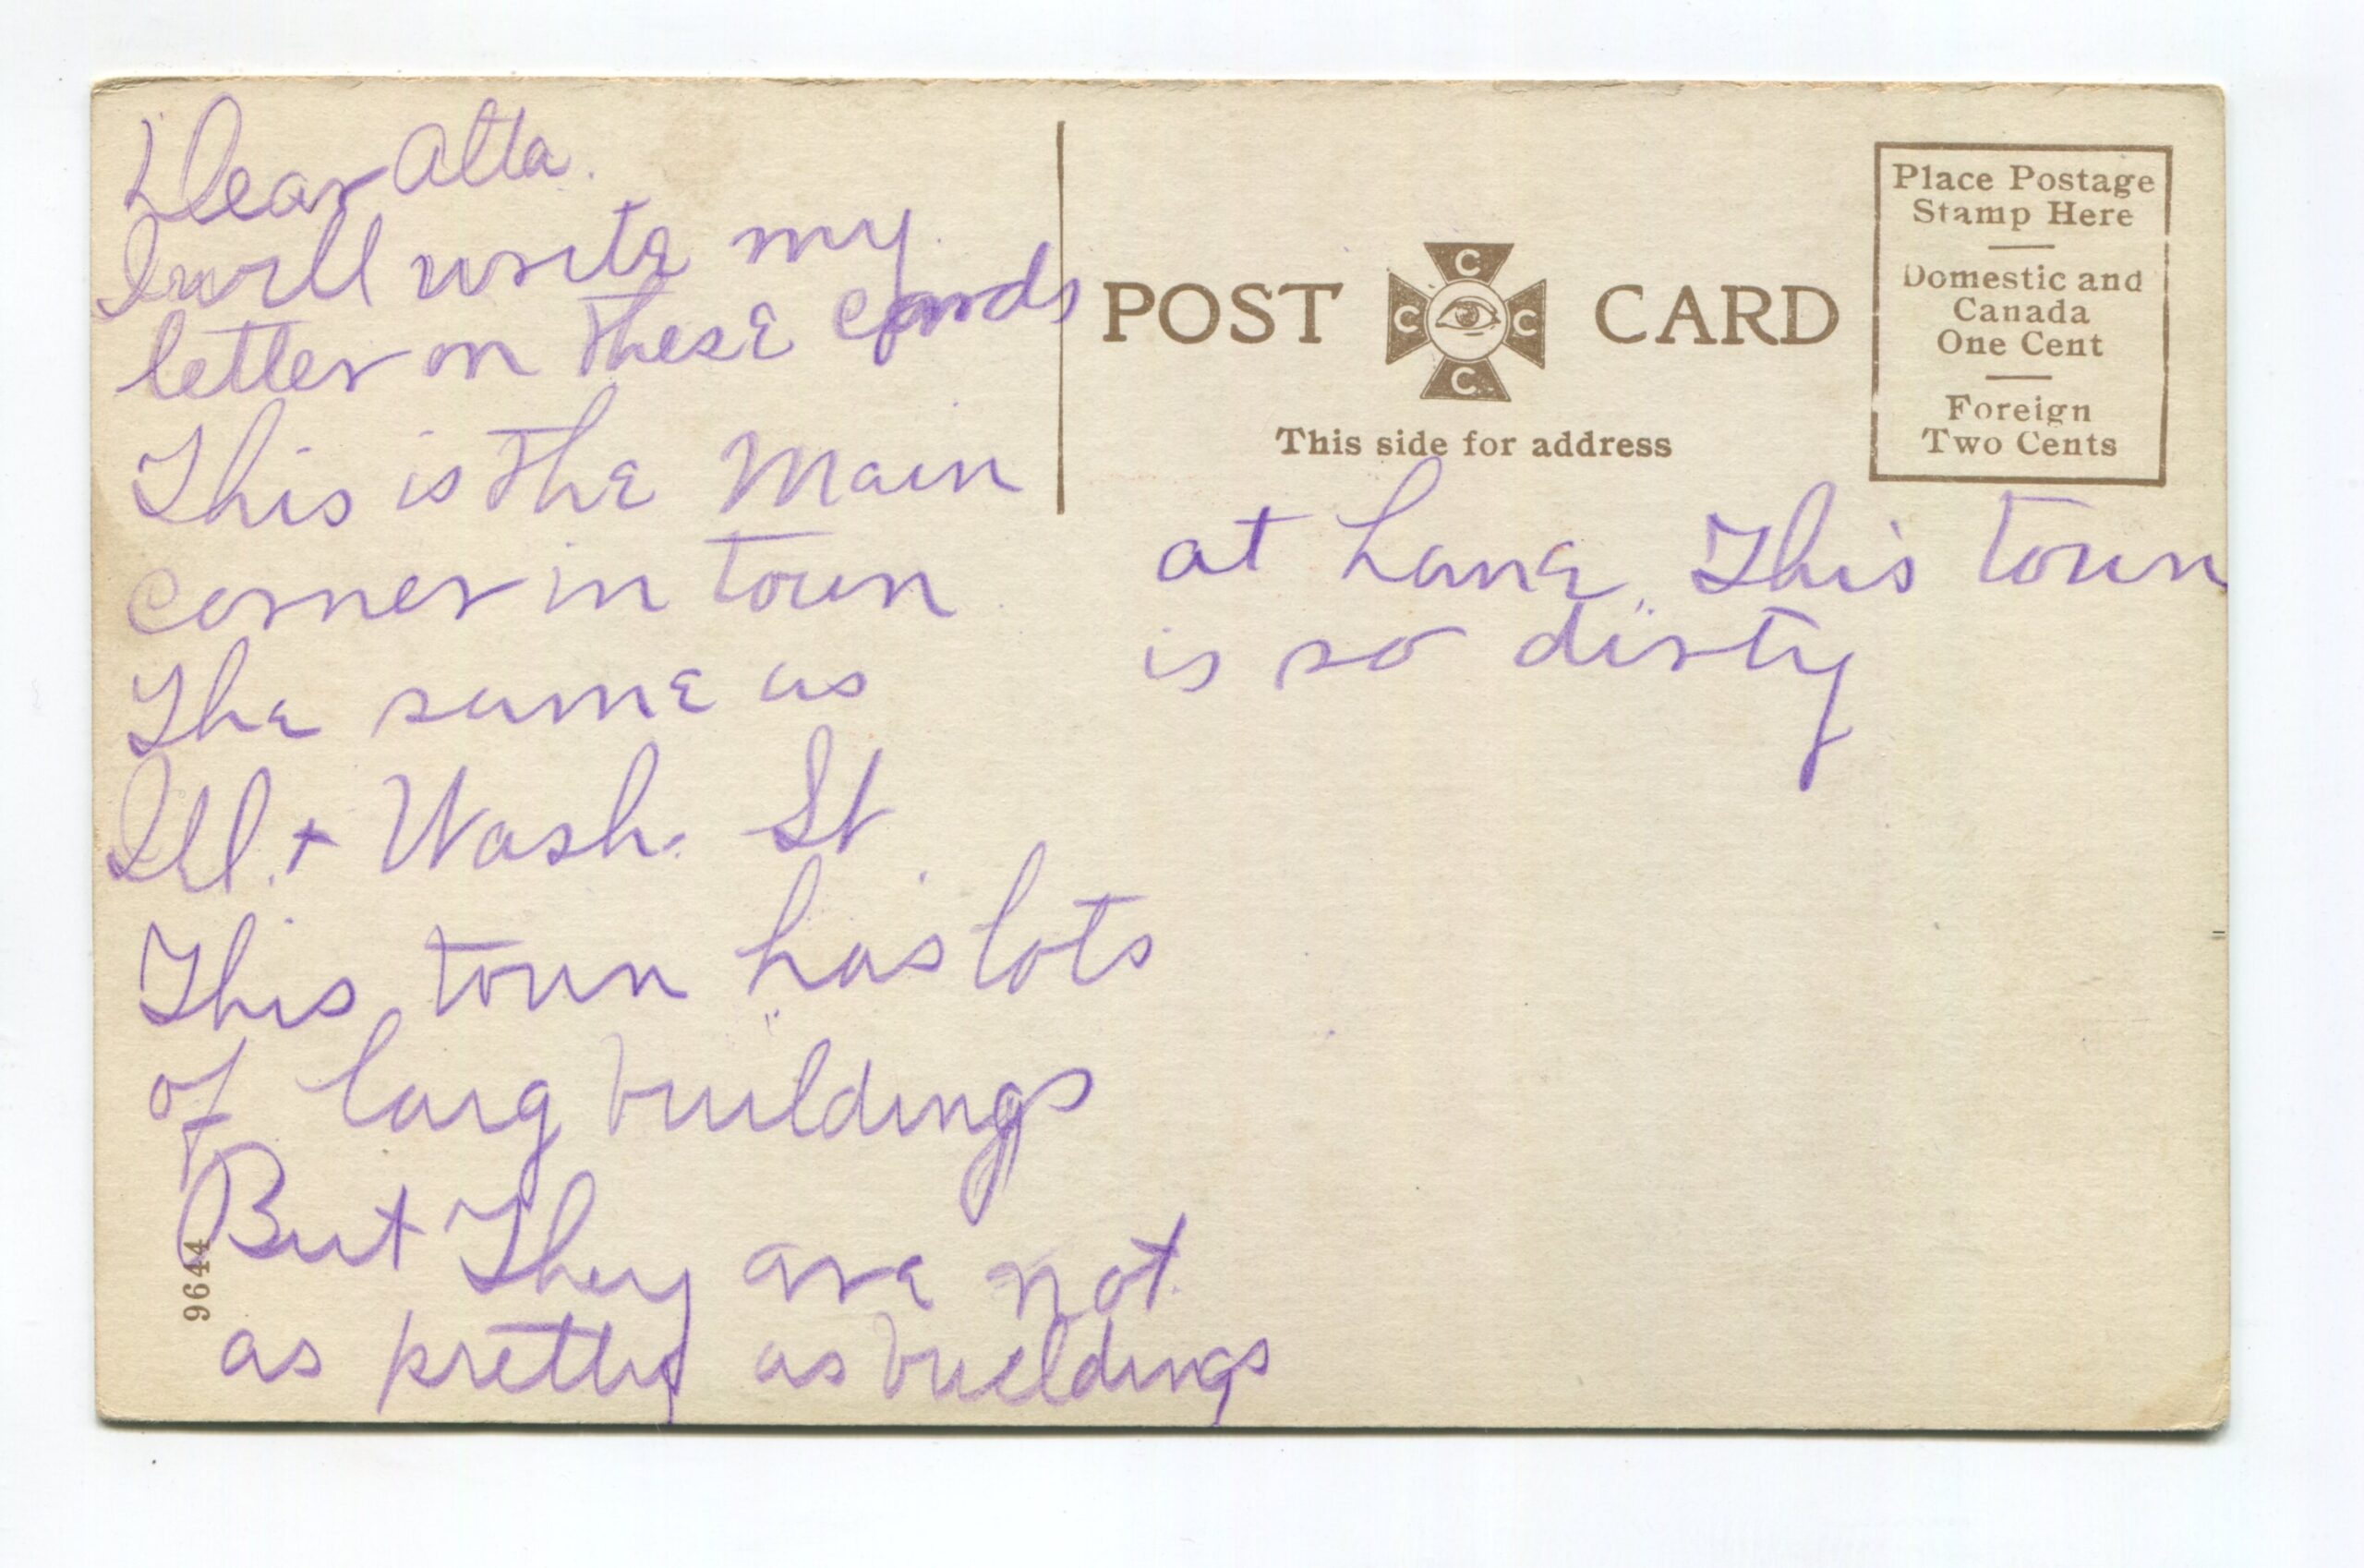 Dear Alta.
I will write my
letter on these cards
This is the Main
corner in town
The same as
Ill. + Wash. St
This town has lots
of larg buildings
But They are not
as pretty as buildings
9644
POST CARD
C
C C
C
This side for address
Place Postage
Stamp Here
Domestic and
Canada
One Cent
Foreign
Two Cents
at This town
is so dirty